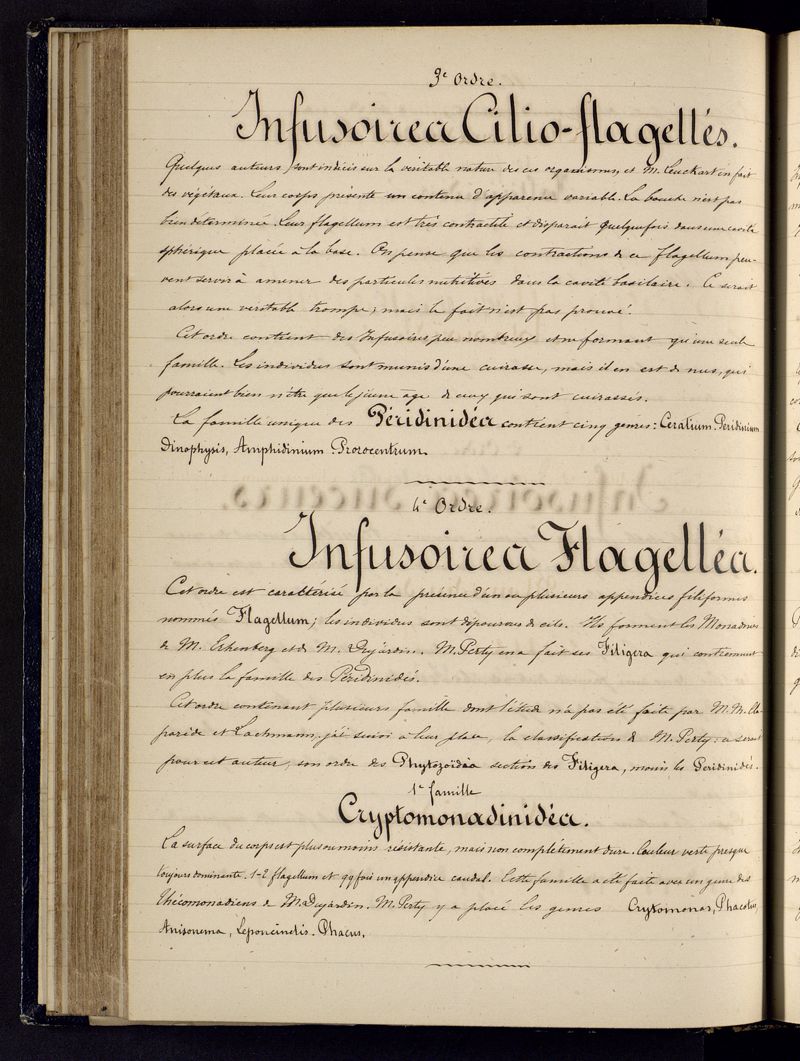 3e Ordre.
Infusoires Cilio-flagellés.
Quelques auteurs sont indécis sur la veritable nature des ces organismes, et M. Leuckart en fait
des végétaux. Leur corps présente un contenu d'apparence variable. La bouche n'est pas
bien déterminée. Leur flagellum est très contractile et disparait Quelquefois dans une cavité
sphérique placée à la base. On pense que les contractions de ce flagellum peu-
vent servir à amener des particules nutritives dans la cavité basilaire. Ce serait
alors une veritable trompe; mais le fait n'est pas prouvé.
Cet ordre contient des Infusoires peu nombreux et ne formant qu'une seule
famille. Les individus sont munis d'une cuirasse, mais il en est de nus, qui
pourraient bien n'être que le jeune âge de ceux qui sont cuirassés.
La famille unique des Péridinidés contient cinq genres: Ceratium. Peridinium
Dinophysis, Amphidinium Prorocentrum.
4e Ordre.
Infusoires Flagellés.
Cet ordre est caractérisé par la présence d'un ou plusieurs appendices filiformes
nommés Flagellum; les individus sont dépourvus de cils. Ils forment les Monadines
de M. Erhenberg et de M. Dujardin. M. Perty en a fait ses Filigera qui contiennent
en plus la famille des Péridinidés.
Cet ordre contenant plusieurs famille dont l'étude n'a pas été faite par M. M. Cla-
parède et Lachmann, j'ai suivi à leur place, la classification de M. Perty: ce serait
pour cet auteur, son ordre des Phytozoïdéa section des Filigera, moins les Peridinidés.
1e famille
Cryptomonadinidés.
La surface du corps est plus ou moins résistante, mais non complètement dure. Couleur verte presque
toujours dominante. 1-2 flagellum et qqfois un appendice caudal. Cette famille a été faite avec un genre des
Thécomonadiens de M. Dujardin. M. Perty y a placé les genres Crytomonas, Phacotus,
Anisonema, Lepocinclis. Phacus.